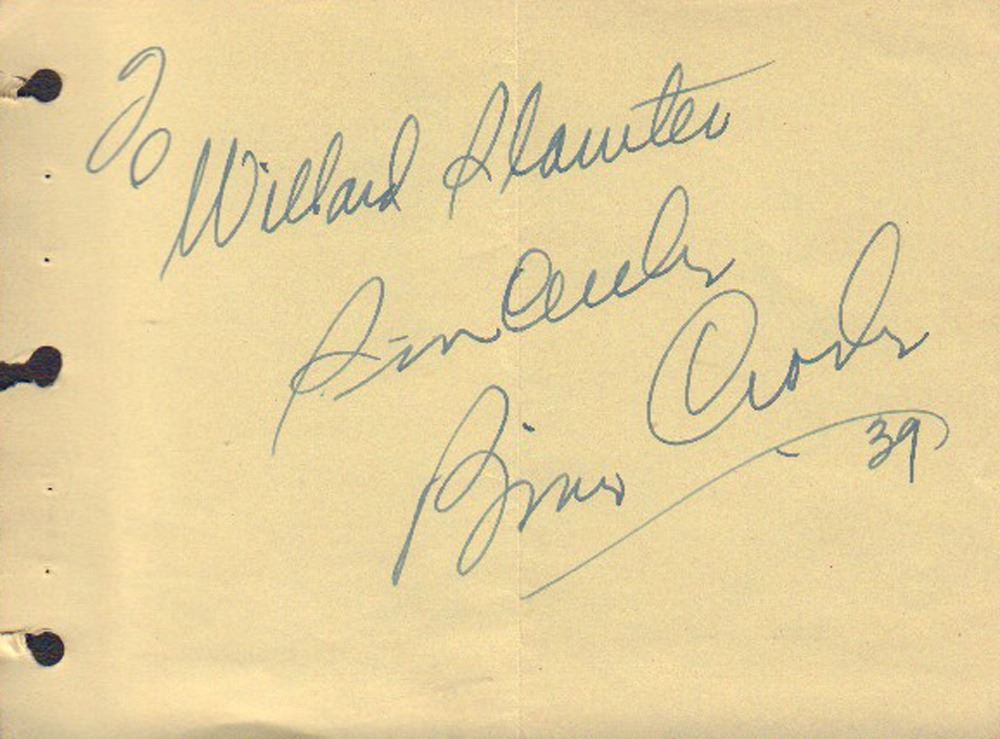 To
Willard
Sincerely
Bing Crosby
39